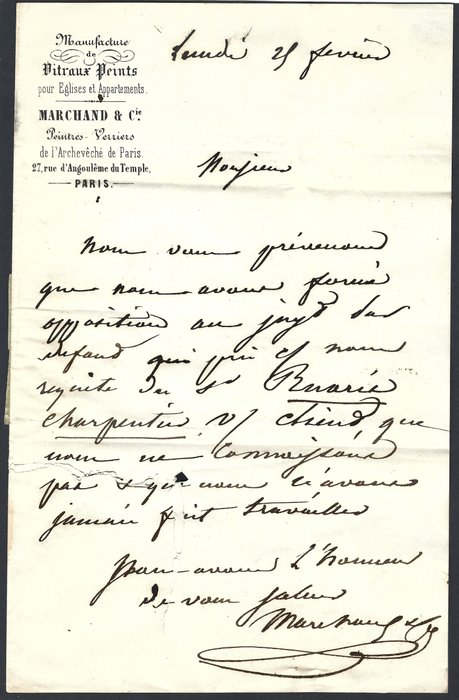 Manufacture
de
Vitraux Peints
pour Eglises et Appartements.
MARCHAND & Cie
Peintres-Verriers
de l'Archevêché de Paris.
27, rue d'Angoulême du Temple,
PARIS.
Lundi 25 février
Monsieur
Nous vous prévenons
que nous avons formé
opposition au jugt par
défaut qui pris c/ nous
requête du sr
charpentier, que
nous ne connaissons
pas & qui nous n'avons
jamais fait travailler
avons l'honneur
de vous saluer
Marchand & Cie